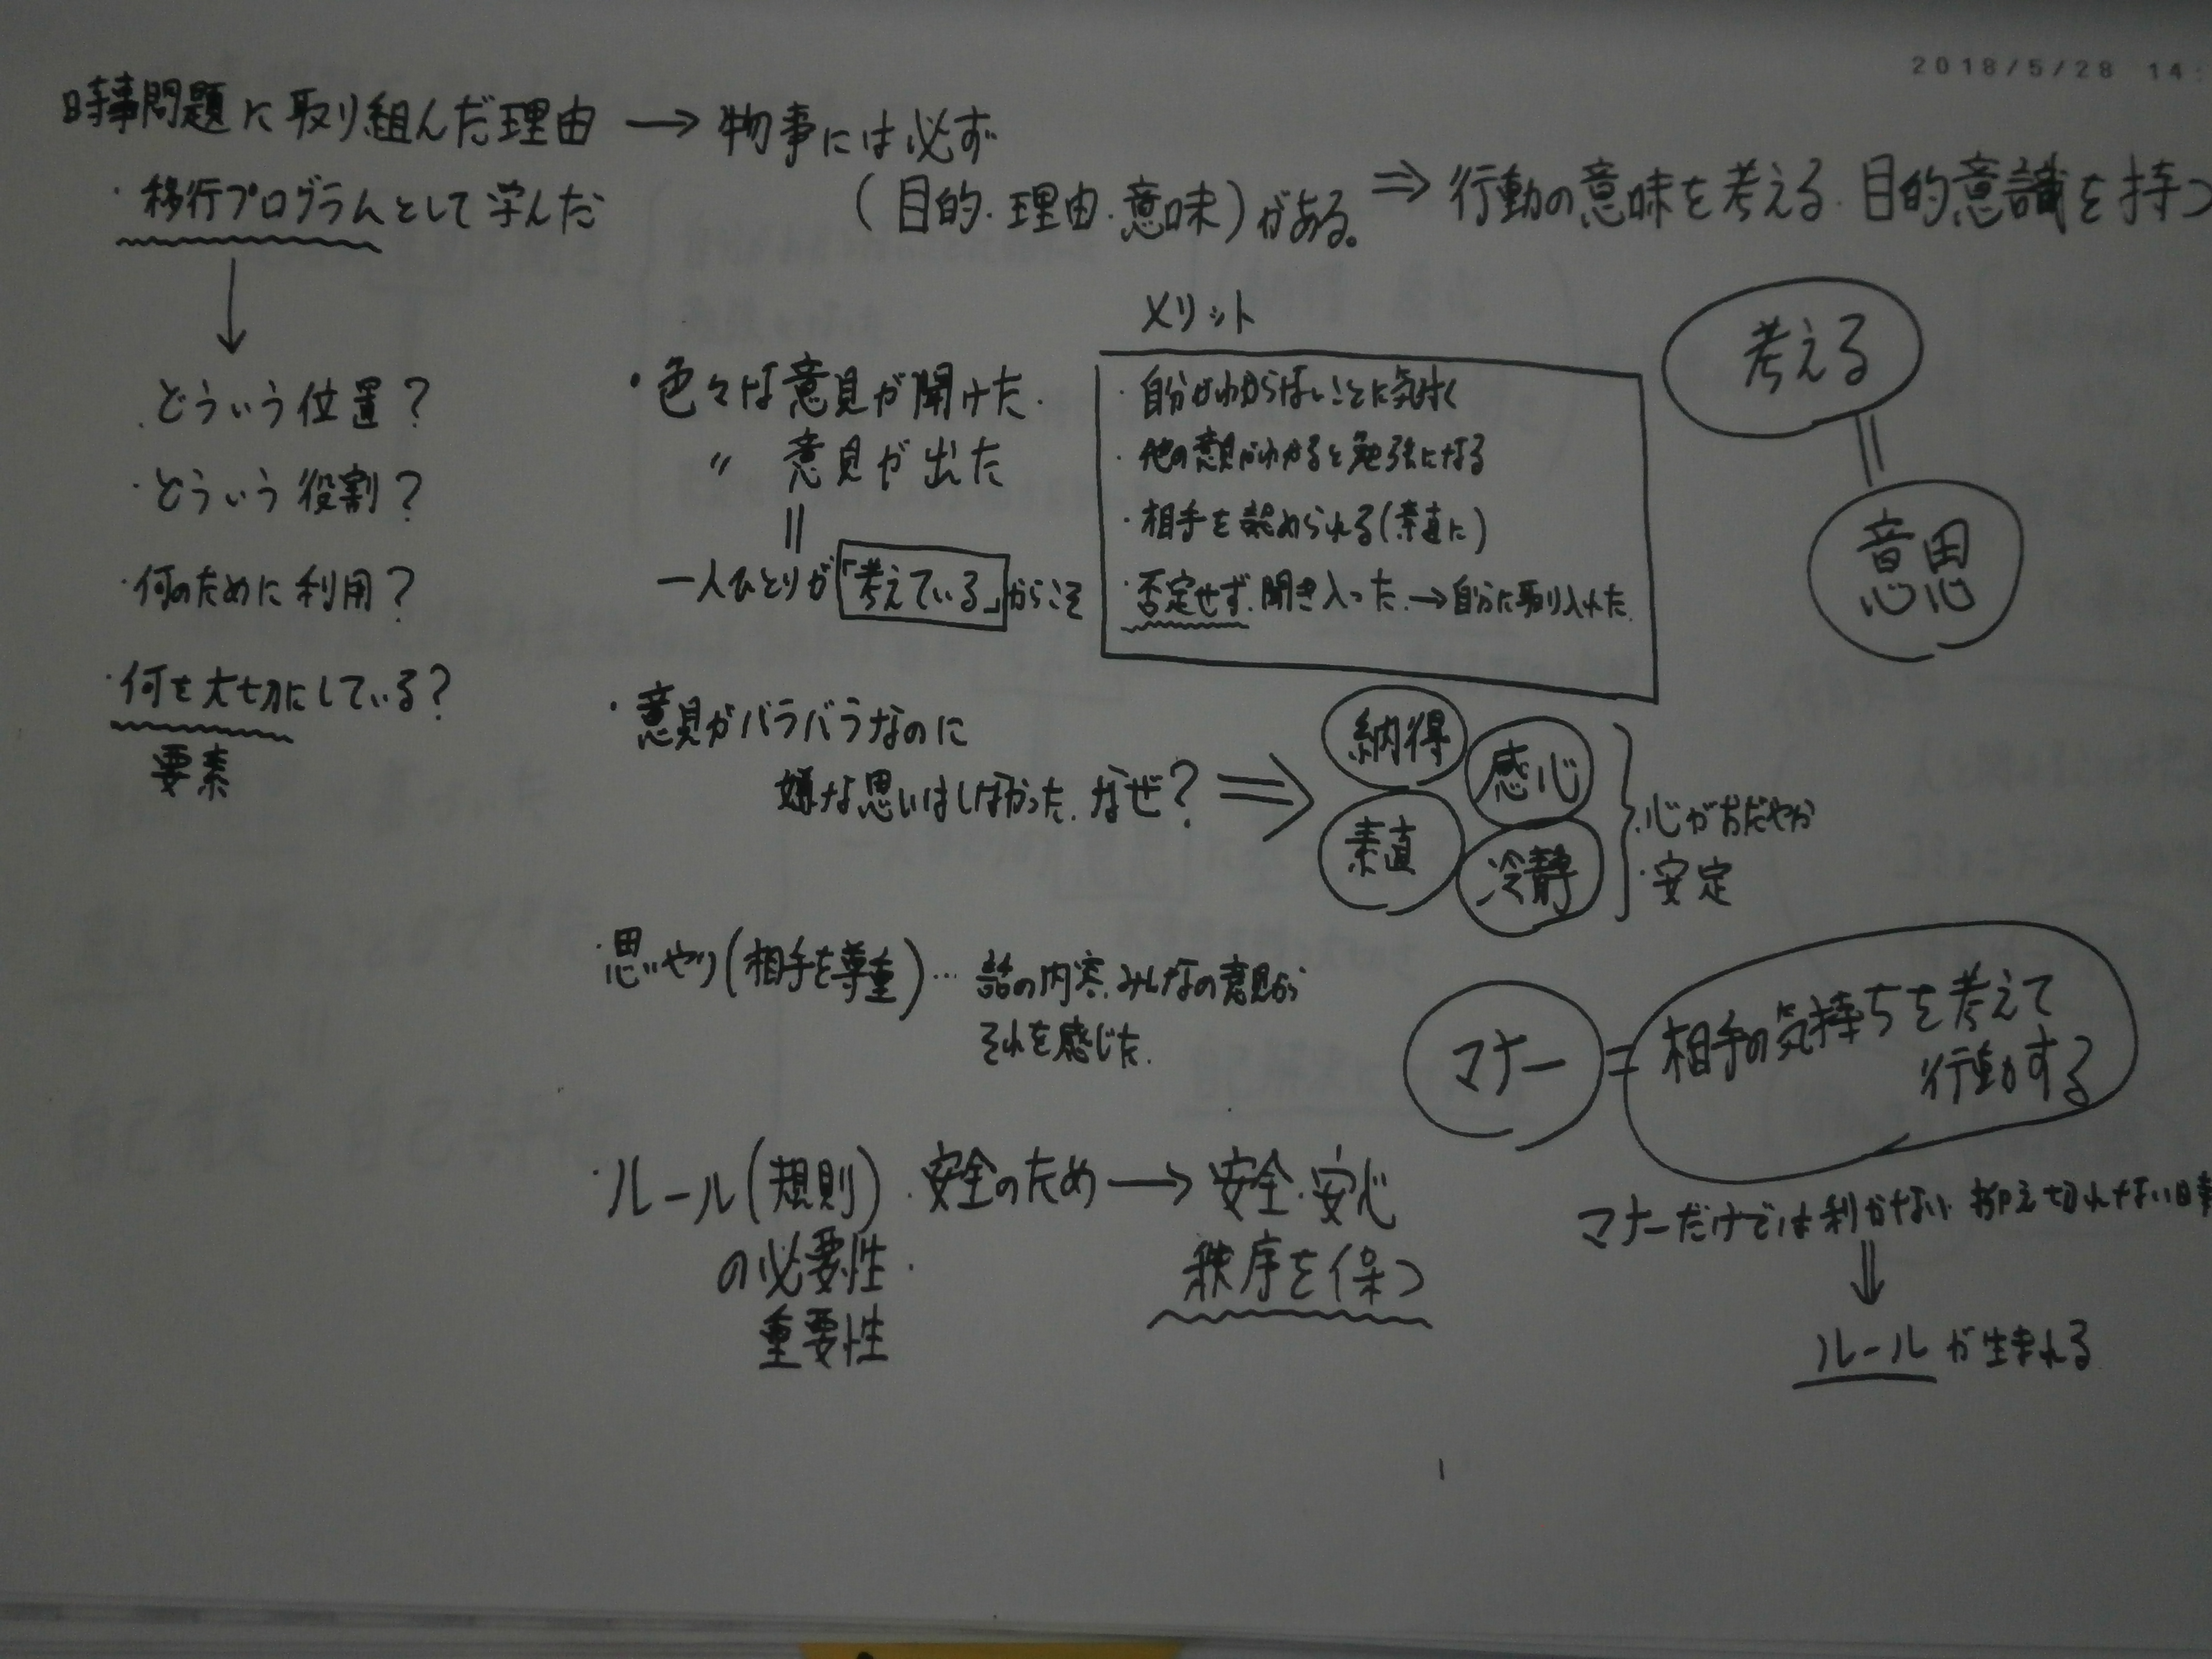 2018/5/28 14:
時事問題に取り組んだ理由 → 物事には必ず
(目的・理由・意味)がある。 ⇒ 行動の意味を考える 目的意識を持つ
・移行プログラムとして学んだ
↓
・どういう位置?
・どういう役割?
・何のために利用?
・何を大切にしている?
要素
・色々な意見が聞けた.
〃 意見が出た
||
一人ひとりが「考えている」からこそ
メリット
・自分がわからないことに気付く
・他の意見がわかると勉強になる
・相手を認められる(素直に)
・否定せず.聞き入った.→自分に取り入れた.
考える
||
意思
・意見がバラバラなのに
嫌な思いはしなかった.なぜ? ⇒
納得
感心
素直
冷静
・心がおだやか
・安定
・思いやり(相手を尊重)… 話の内容.みんなの意見から
それを感じた.
マナー = 相手の気持ちを考えて
行動する
・ルール(規則)
の必要性.
重要性
・安全のため → 安全・安心
秩序を保つ
マナーだけでは利かない 抑え切れない
⇓
ルールが生まれる